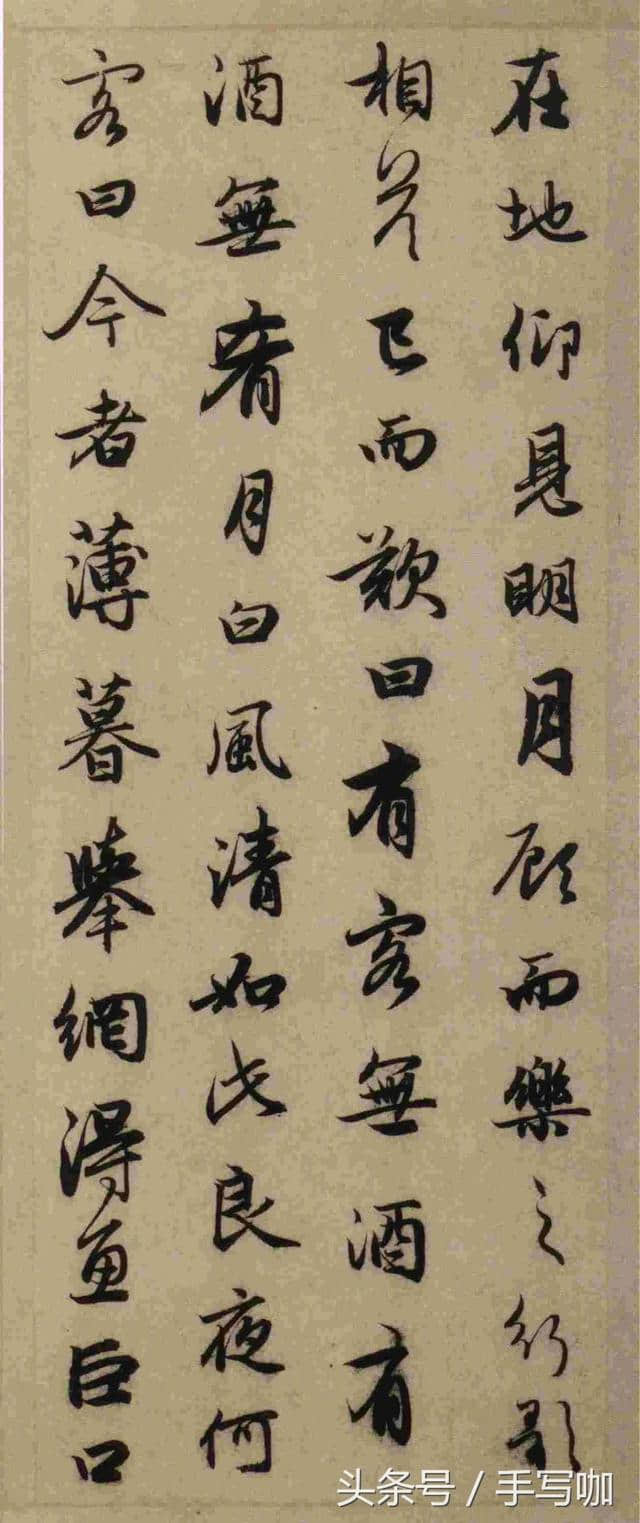 在地仰見明月顧而樂之行歌
相答已而歎曰有客無酒有
酒無肴月白風清如此良夜何
客曰今者薄暮舉網得魚巨口
头条号 / 手写咖